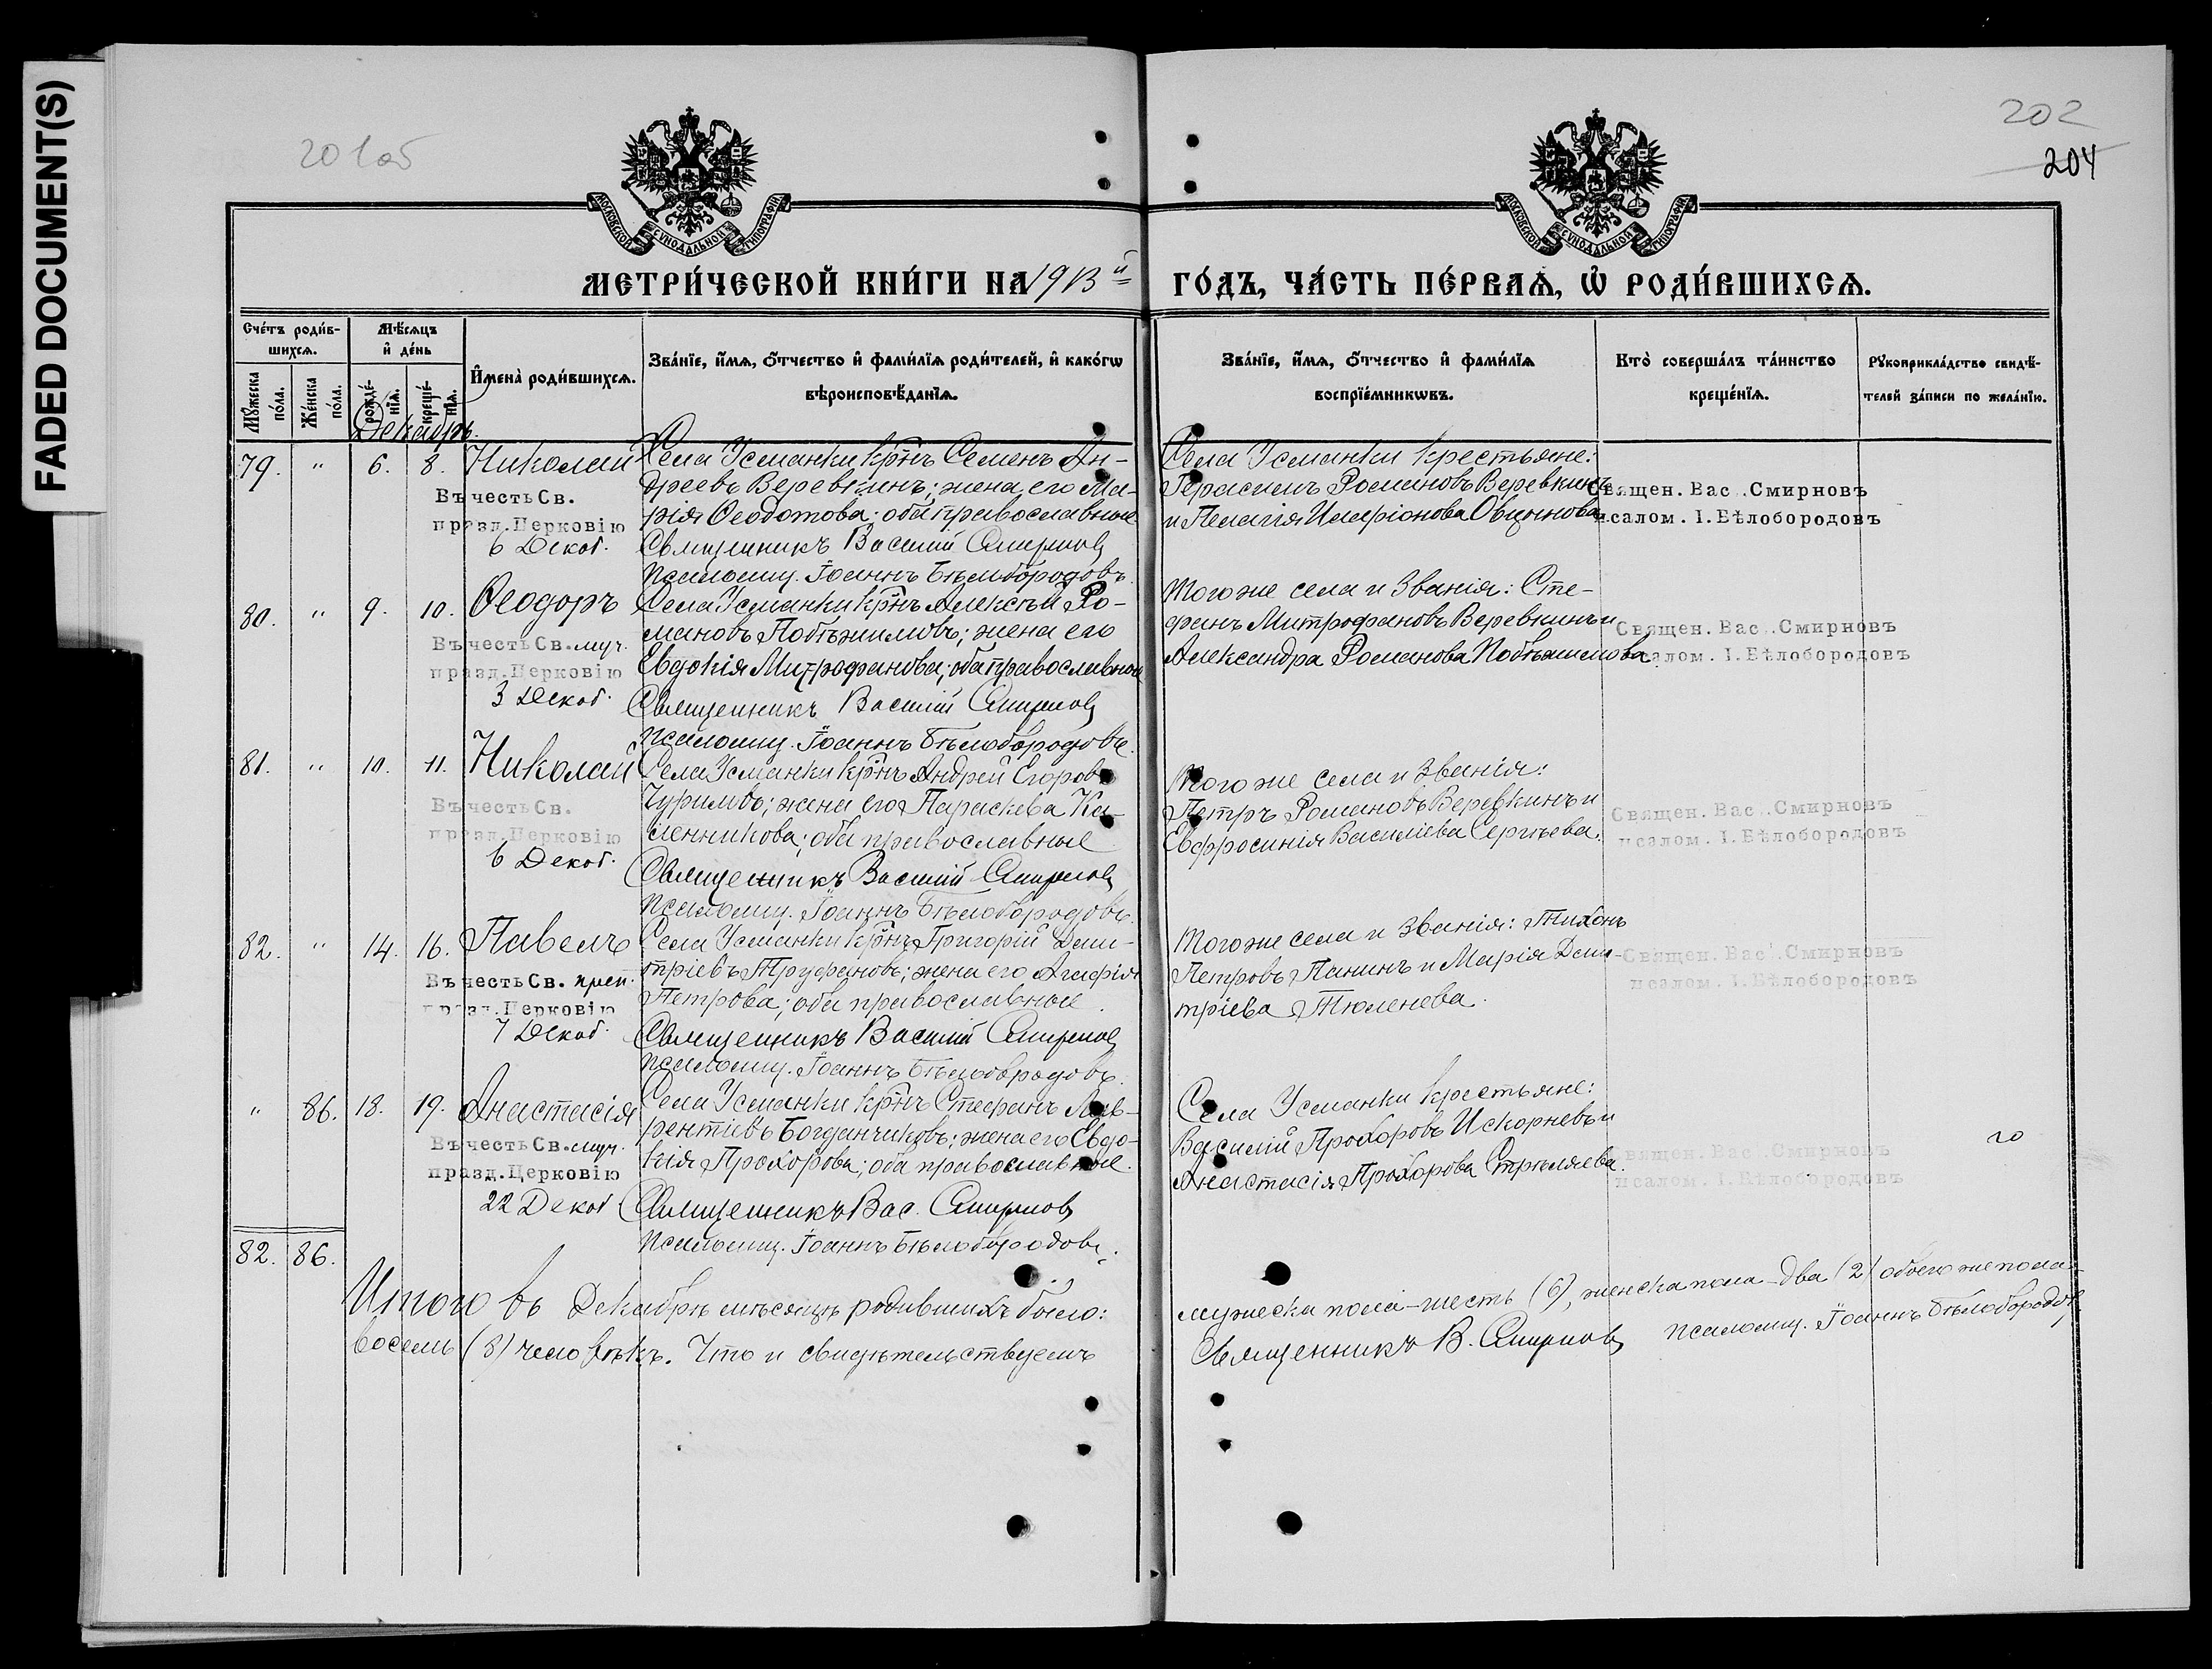 FADED DOCUMENT(S)
201об
202
204
МОСКОВСКОЙ СѴНОДАЛЬНОЙ ТИПОГРАФІИ
МОСКОВСКОЙ СѴНОДАЛЬНОЙ ТИПОГРАФІИ
МЕТРИ́ЧЕСКОЙ КНИ́ГИ НА 1913й ГО́ДЪ, ЧА́СТЬ ПЕ́РВАѦ, Ѡ҆ РОДИ́ВШИХСѦ.
Сче́тъ роди́в-
шихсѧ.
Мѣ́сѧцъ
и҆ де́нь
Мꙋ́жеска
по́ла.
Же́нска
по́ла.
рожде́-
нїѧ.
креще́-
нїѧ.
И҆мена̀ роди́вшихсѧ.
Зва́нїе, и҆́мѧ, ѻ҆́тчество и҆ фами́лїѧ роди́телей, и҆ како́гѡ
вѣроисповѣ́данїѧ.
Зва́нїе, и҆́мѧ, ѻ҆́тчество и҆ фами́лїѧ
воспрїе́мникѡвъ.
Кто̀ соверша́лъ та́инство
креще́нїѧ.
Рꙋкоприкла́дство свидѣ́-
телей за́писи по жела́нїю.
Декабрь.
79. " 6. 8. Николай
Въ честь Св.
празд. Церковію
6 Декаб.
Села Усманки кр-нъ Семенъ Ан-
дреевъ Веревкинъ; жена его Ма-
рія Ѳеодотова; оба православные
Священникъ Василій Смирновъ
Псаломщ. Іоаннъ Бѣлобородовъ.
Села Усманки крестьяне:
Герасимъ Романовъ Веревкинъ
и Пелагія Иларіонова Овцынова.
Священ. Вас. Смирновъ
псалом. І. Бѣлобородовъ
80. " 9. 10. Ѳеодоръ
Въ честь Св. муч.
празд. Церковію
3 Декаб.
Села Усманки кр-нъ Алексѣй Ро-
мановъ Побѣжимовъ; жена его
Евдокія Митрофанова; оба православные
Священникъ Василій Смирновъ
Псаломщ. Іоаннъ Бѣлобородовъ.
Того же села и званія: Сте-
фанъ Митрофановъ Веревкинъ и
Александра Романова Побѣжимова.
Священ. Вас. Смирновъ
псалом. І. Бѣлобородовъ
81. " 10. 11. Николай
Въ честь Св.
празд. Церковію
6 Декаб.
Села Усманки кр-нъ Андрей Егоровъ
жена его Параскева Ка-
оба православные
Священникъ Василій Смирновъ
Псаломщ. Іоаннъ Бѣлобородовъ.
Того же села и званія:
Петръ Романовъ Веревкинъ и
Евфросинія Василіева Сергѣева.
Священ. Вас. Смирновъ
псалом. І. Бѣлобородовъ
82. " 14. 16. Павелъ
Въ честь Св. преп.
празд. Церковію
7 Декаб.
Села Усманки кр-нъ Григорій Дими-
тріевъ Труфановъ; жена его Агафія
Петрова; оба православные.
Священникъ Василій Смирновъ
Псаломщ. Іоаннъ Бѣлобородовъ.
Того же села и званія: Тихонъ
Петровъ Панинъ и Марія Дими-
тріева Тюленева.
Священ. Вас. Смирновъ
псалом. І. Бѣлобородовъ
" 86. 18. 19. Анастасія
Въ честь Св. муч.
празд. Церковію
22 Декаб
Села Усманки кр-нъ Стефанъ Лав-
рентіевъ Богданчиковъ; жена его Евдо-
кія Прохорова; оба православные.
Священникъ Вас. Смирновъ
Псаломщ. Іоаннъ Бѣлобородовъ.
Села Усманки крестьяне:
Василій Прохоровъ Искорневъ и
Анастасія Прохорова Стрѣляева.
Священ. Вас. Смирновъ
псалом. І. Бѣлобородовъ
82. 86.
Итого въ Декабрѣ мѣсяцѣ родившихъ было: мужеска пола-шесть (6), женска пола-два (2) обоего же пола-
восемь (8) человѣкъ. Что и свидѣтельствуемъ Священникъ В. Смирновъ Псаломщ. Іоаннъ Бѣлобородовъ